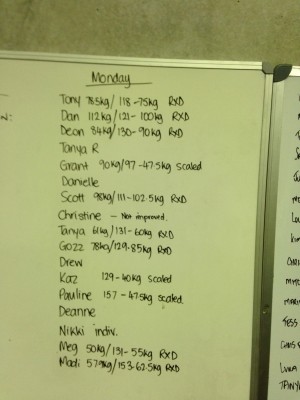 Monday
Tony 78.5kg/118-75kg RXD
Dan 112kg/121-100kg RXD
Deon 84kg/130-90kg RXD
Tanya R
Grant 90kg/97-47.5kg scaled
Danielle
Scott 98kg/111-102.5kg RXD
Christine - Not improved.
Tanya 61kg/131-60kg RXD
Gozz 78kg/129.85kg RXD
Drew
Kaz 129-40kg scaled
Pauline 157-47.5kg scaled.
Deanne
Nikki indiv.
Meg 50kg/131-55kg RXD
Madi 57.9kg/153-62.5kg RXD